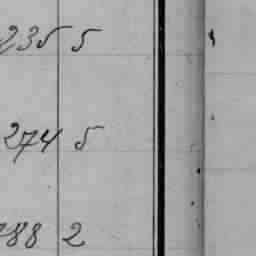 235 5
274 5
788 2